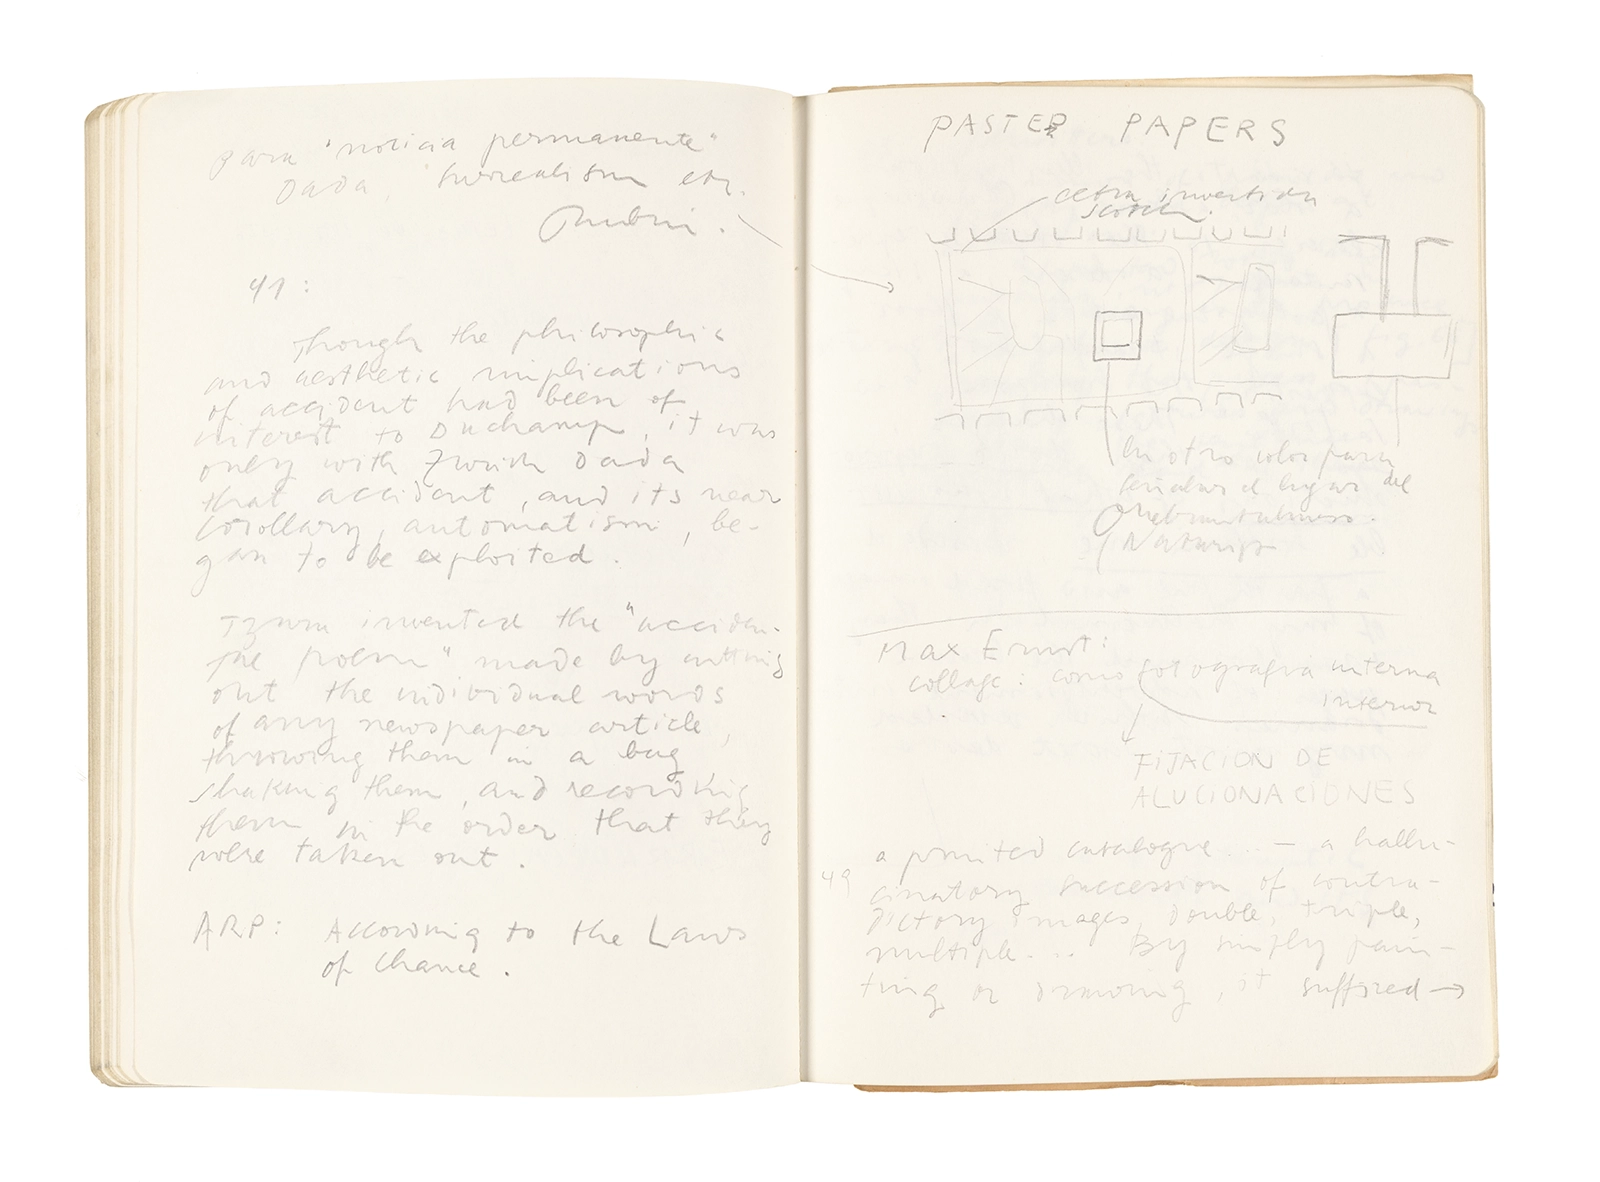 para "noticia permanente"
Dada, Surrealism etc.
Rubin.
41:
Though the philosophic
and aesthetic implications
of accident had been of
interest to Duchamp, it was
only with Zurich Dada
that accident, and its near
corollary, automatism, be-
gan to be exploited.
Tzara invented the "acciden-
tal poem" made by cutting
out the individual words
of any newspaper article,
throwing them in a bag
shaking them, and recording
them in the order that they
were taken out.
ARP: According to the Laws
of Chance.
PASTED PAPERS
cetra invertida
scotch.
En otro color para
señalar el lugar del
Max Ernst:
collage: como fotografia interna
interior
FIJACION DE
ALUCIONACIONES
a printed catalogue ... — a hallu-
49 cinatory succession of contra-
dictory images, double, triple,
multiple... By simply pain-
ting or drawing, it sufficed →